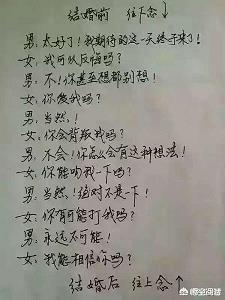 结婚前 往下念↓
男:太好了!我期待的这一天终于来了!
女:我可以反悔吗?
男:不!你甚至想都别想!
女:你爱我吗?
男:当然!
女:你会背叛我吗?
男:不会!你怎么会有这种想法!
女:你能吻我一下吗?
男:当然!绝对不是一下!
女:你有可能打我吗?
男:永远不可能!
女:我能相信你吗?
结婚后 往上念↑
悟空问答